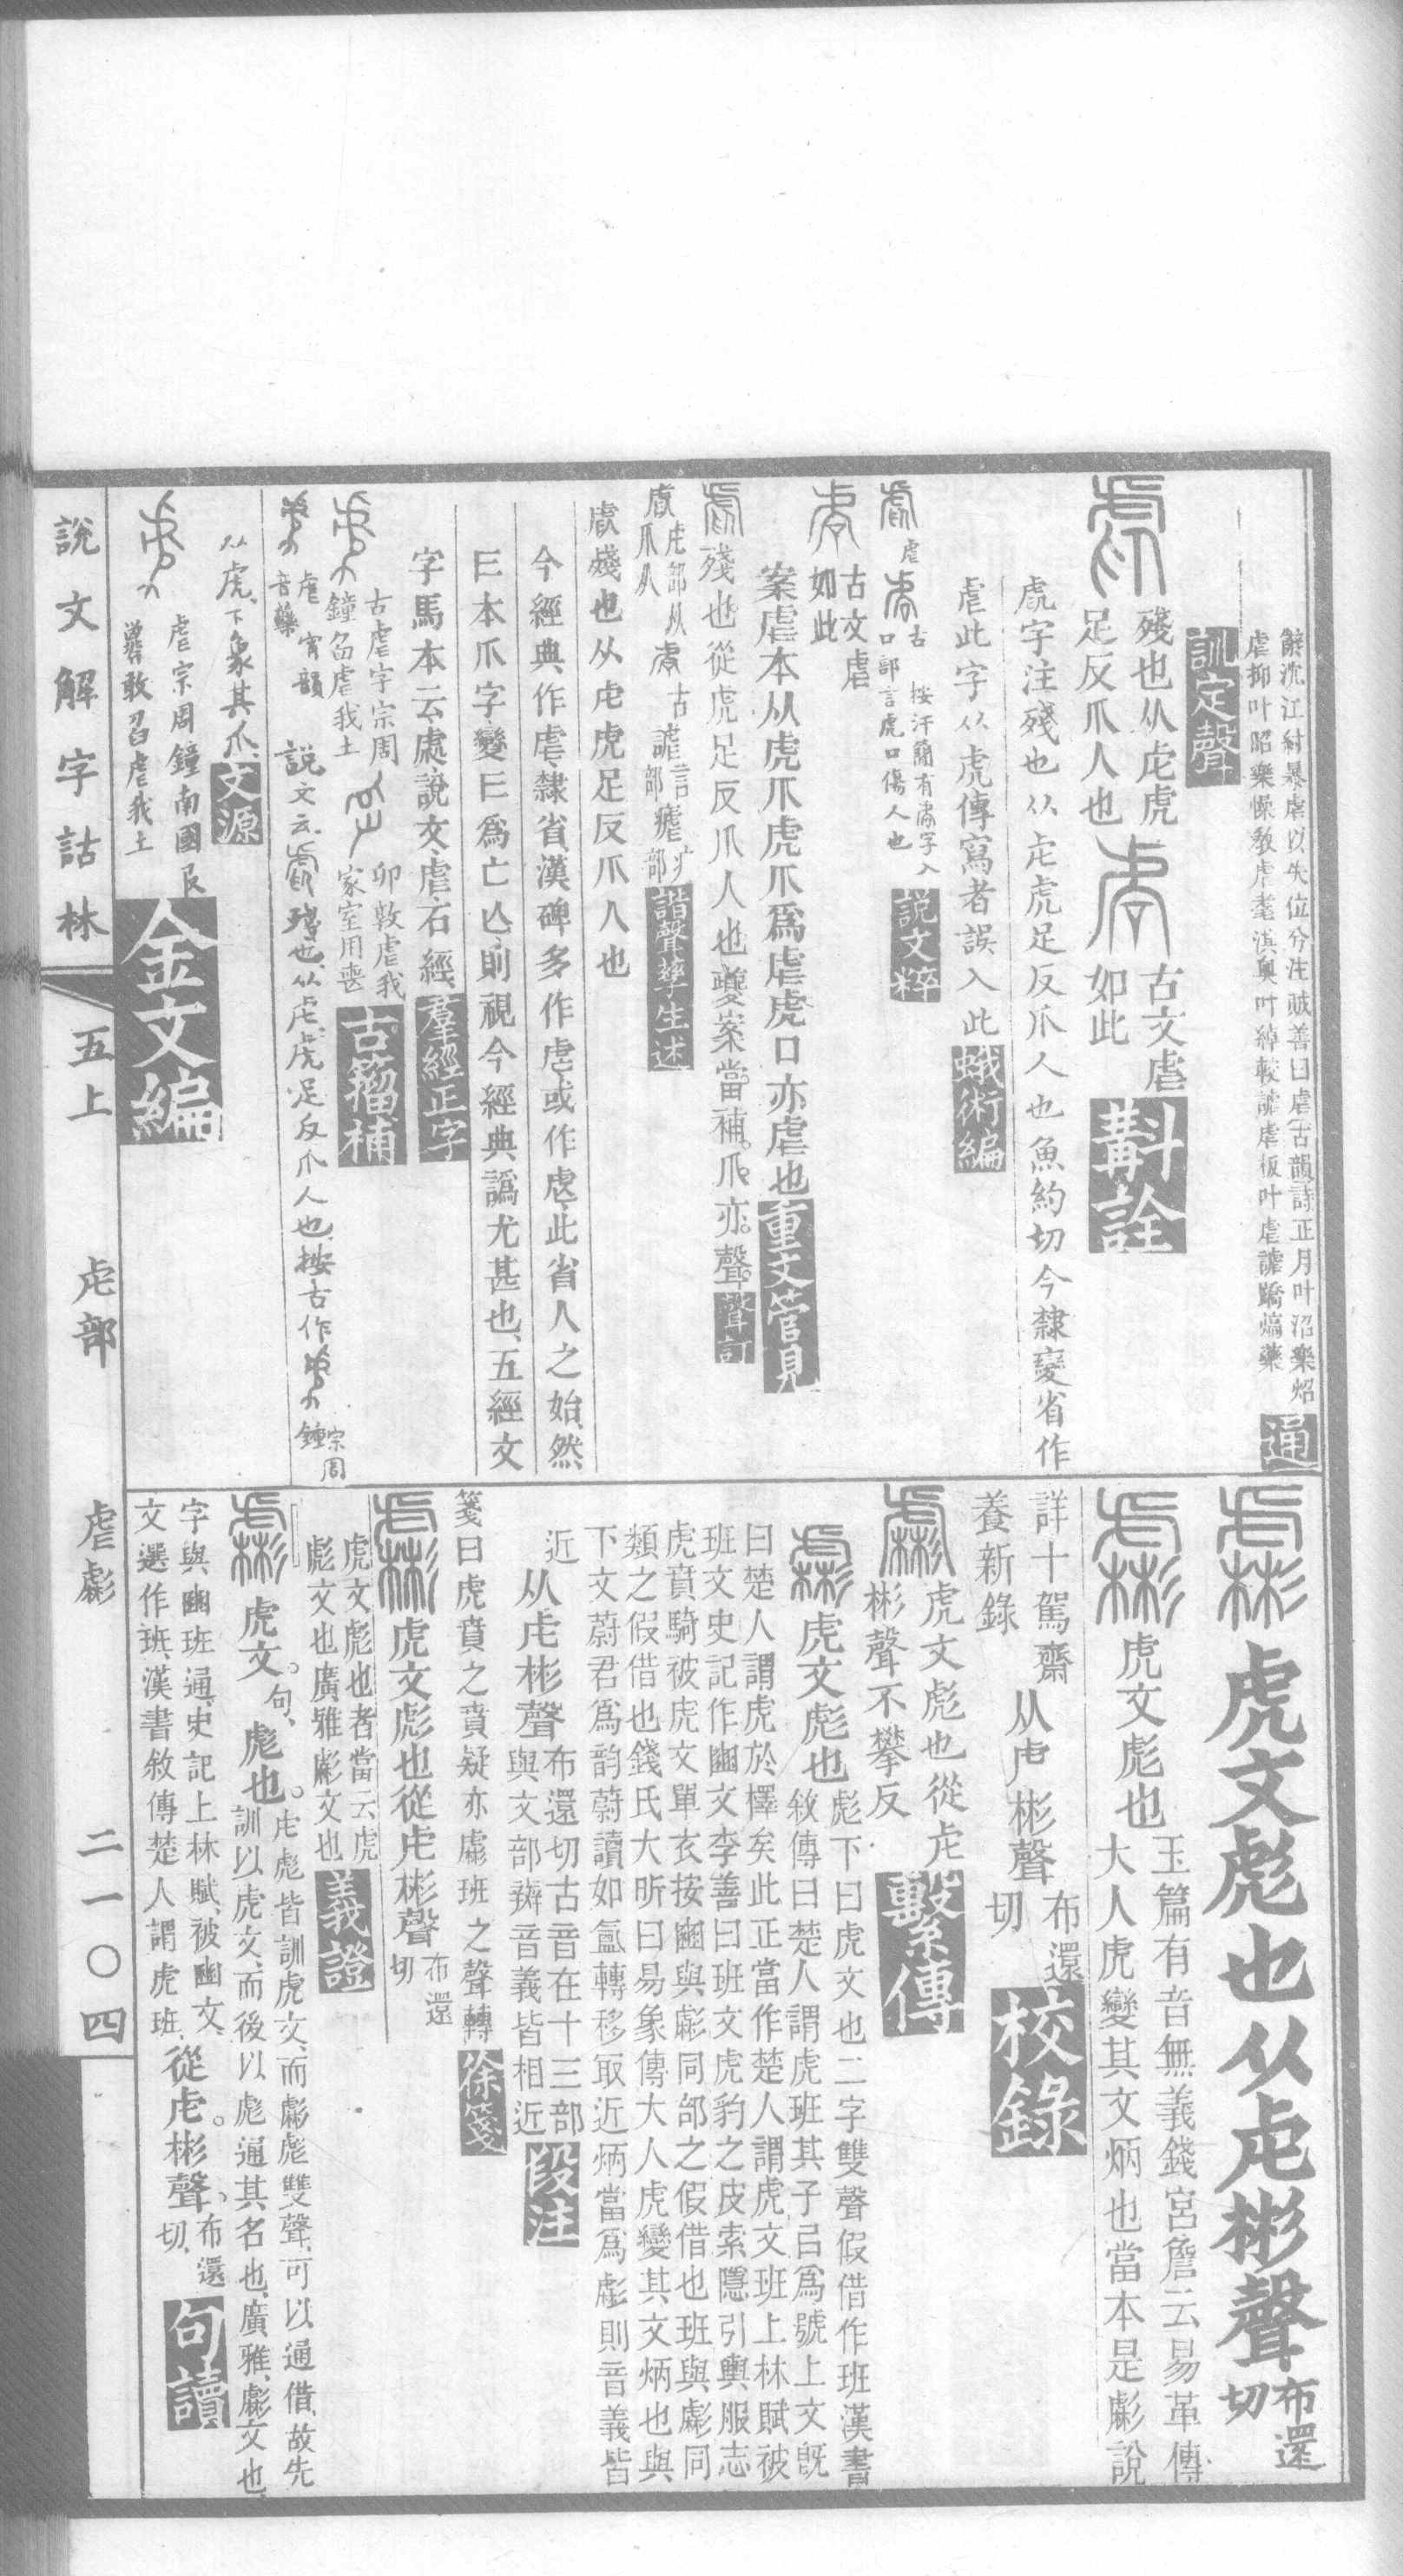 辭沈江紂暴虐以失位兮注賊善曰虐古韻詩正月叶沼樂炤
虐抑叶昭樂懆教虐耄滇輿叶綽較謔虐板叶虐謔蹻熇藥
通
訓定聲
殘也从虍虎
足反爪人也
古文虐
如此
斠詮
虍字注殘也从虍虎足反爪人也魚約切今隸變省作
虐此字从虎傳寫者誤入此
蛾術編
虐
古
口部言虎口傷人也
說文粹
古文虐
如此
案虐本从虎爪虎爪爲虐虎口亦虐也
重文管見
殘也從虎足反爪人也夔案當補爪亦聲
聲訂
虍部从
爪人
古
謔言部
瘧疒部
諧聲孳生述
殘也从虍虎足反爪人也
今經典作虐隸省漢碑多作虐或作虐此省人之始然
曰本爪字變曰爲亡亾則視今經典譌尤甚也五經文
字馬本云虐說文虐石經
羣經正字
古虐字宗周
鐘䧟虐我土
卯敦虐我
家室用喪
古籀補
虐宵韻
音藥
說文云殘也从虍虎足反爪人也按古作
宗周
鐘
从虎下象其爪
文源
虐宗周鐘南國𠬝
孳敢䧟虐我土
金文編
說文解字詁林
五上
虍部
虐彪
二一〇四
虎文彪也从虍彬聲
布還
切
虎文彪也
玉篇有音無義錢宮詹云易革傳
大人虎變其文炳也當本是虨說
詳十駕齋
養新錄
从虍彬聲
布還
切
校錄
虎文彪也從虍
彬聲不攀反
繫傳
虎文彪也
彪下曰虎文也二字雙聲假借作班漢書
敘傳曰楚人謂虎班其子㠯爲號上文旣
曰楚人謂虎於檡矣此正當作楚人謂虎文班上林賦被
班文史記作豳文李善曰班文虎豹之皮索隱引輿服志
虎賁騎被虎文單衣按豳與虨同部之假借也班與虨同
類之假借也錢氏大昕曰易象傳大人虎變其文炳也與
下文蔚君爲韵蔚讀如氲轉移取近炳當爲虨則音義皆
近
从虍彬聲
布還切古音在十三部
與文部辬音義皆相近
段注
箋曰虎賁之賁疑亦虨班之聲轉
徐箋
虎文彪也從虍彬聲
布還
切
虎文彪也者當云虎
彪文也廣雅虨文也
義證
虎文
句
彪也
虍彪皆訓虎文而虨彪雙聲可以通借故先
訓以虎文而後以彪通其名也廣雅虨文也
字與豳班通史記上林賦被豳文
文選作班漢書敘傳楚人謂虎班
從虍彬聲
布還
切
句讀